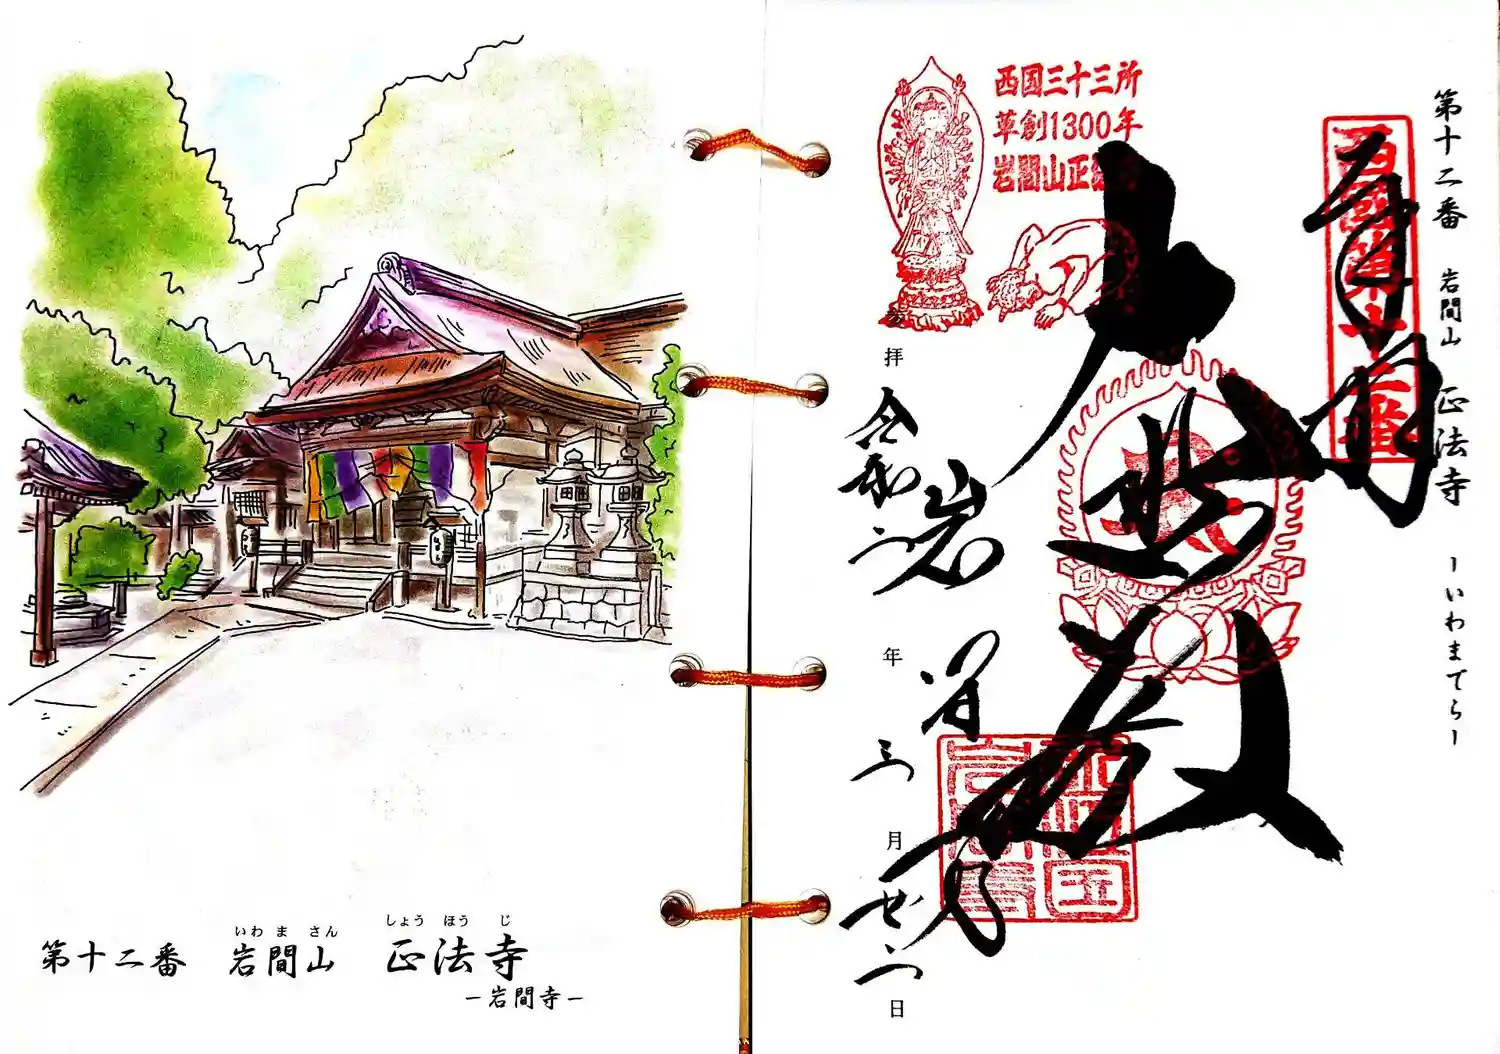 第十二番 岩間山 正法寺
ーいわまでらー
奉拝
大悲殿
岩間寺
令和二年三月廿二日
西国三十三所
草創1300年
岩間山正法寺
しょう ほう じ
いわ ま さん
第十二番 岩間山 正法寺
ー岩間寺ー